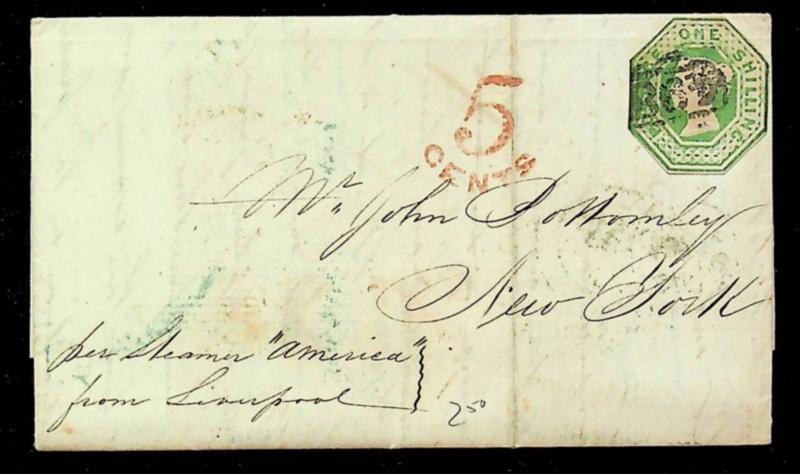 POSTAGE ONE SHILLING
5
CENTS
Mr. John Bottomley
New York
per Steamer "America"
from Liverpool
250